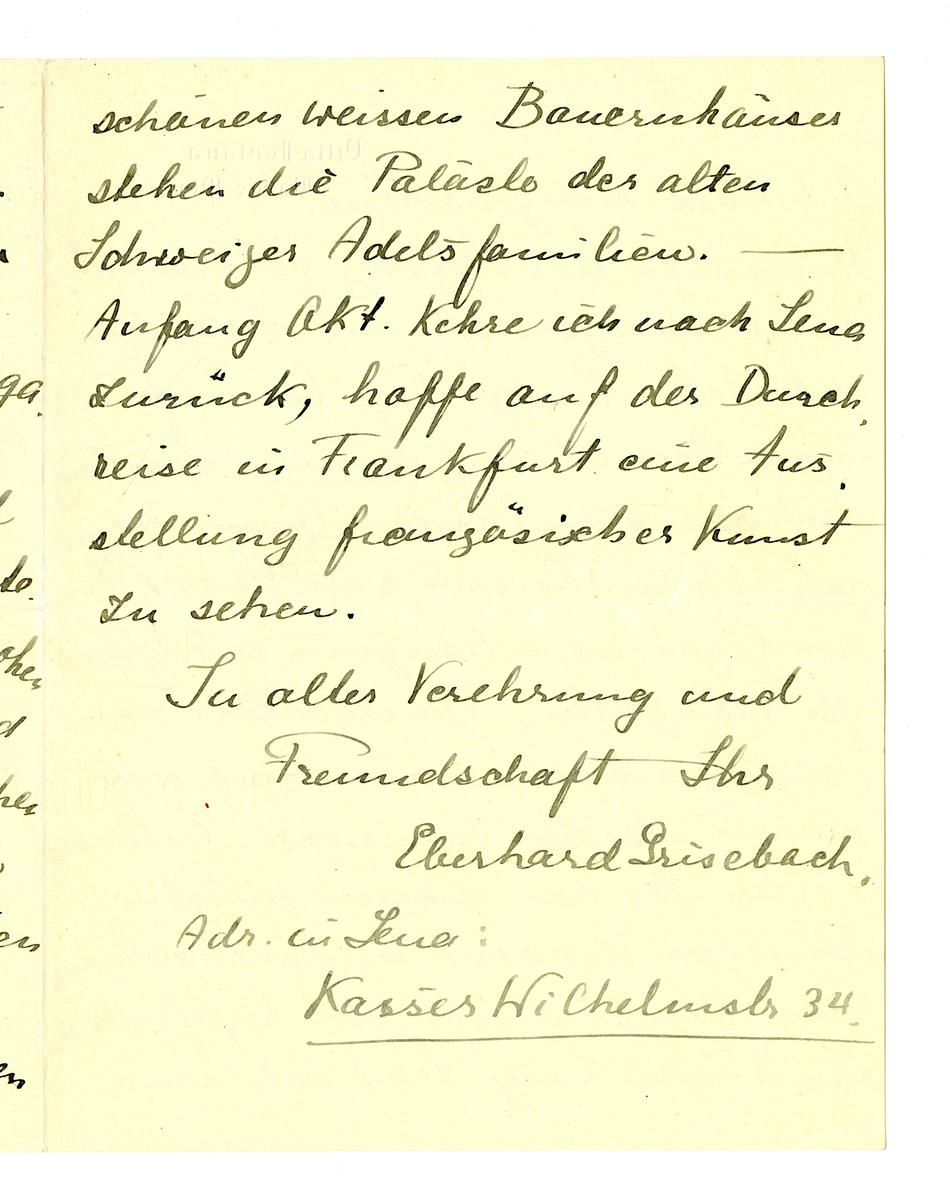 schönen weissen Bauernhäuser
stehen die Paläste der alten
Schweizer Adelsfamilien. —
Anfang Okt. Kehre ich nach Jena
zurück, hoffe auf der Durch-
reise in Frankfurt eine Aus-
stellung französischer Kunst
zu sehen.
In alter Verehrung und
Freundschaft Ihr
Eberhard Grisebach.
Adr. in Jena:
Kaiser Wilhelmstr 34.